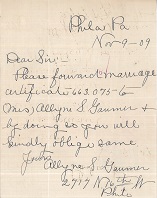 Phila Pa
Nov-9-09
Dear Sir:-
Please forward marriage
certificate 662075-6
Miss Allyne S. Gaumer &
by doing so you will
kindly oblige same
Yours
Allyne S. Gaumer
2717 N
Phila